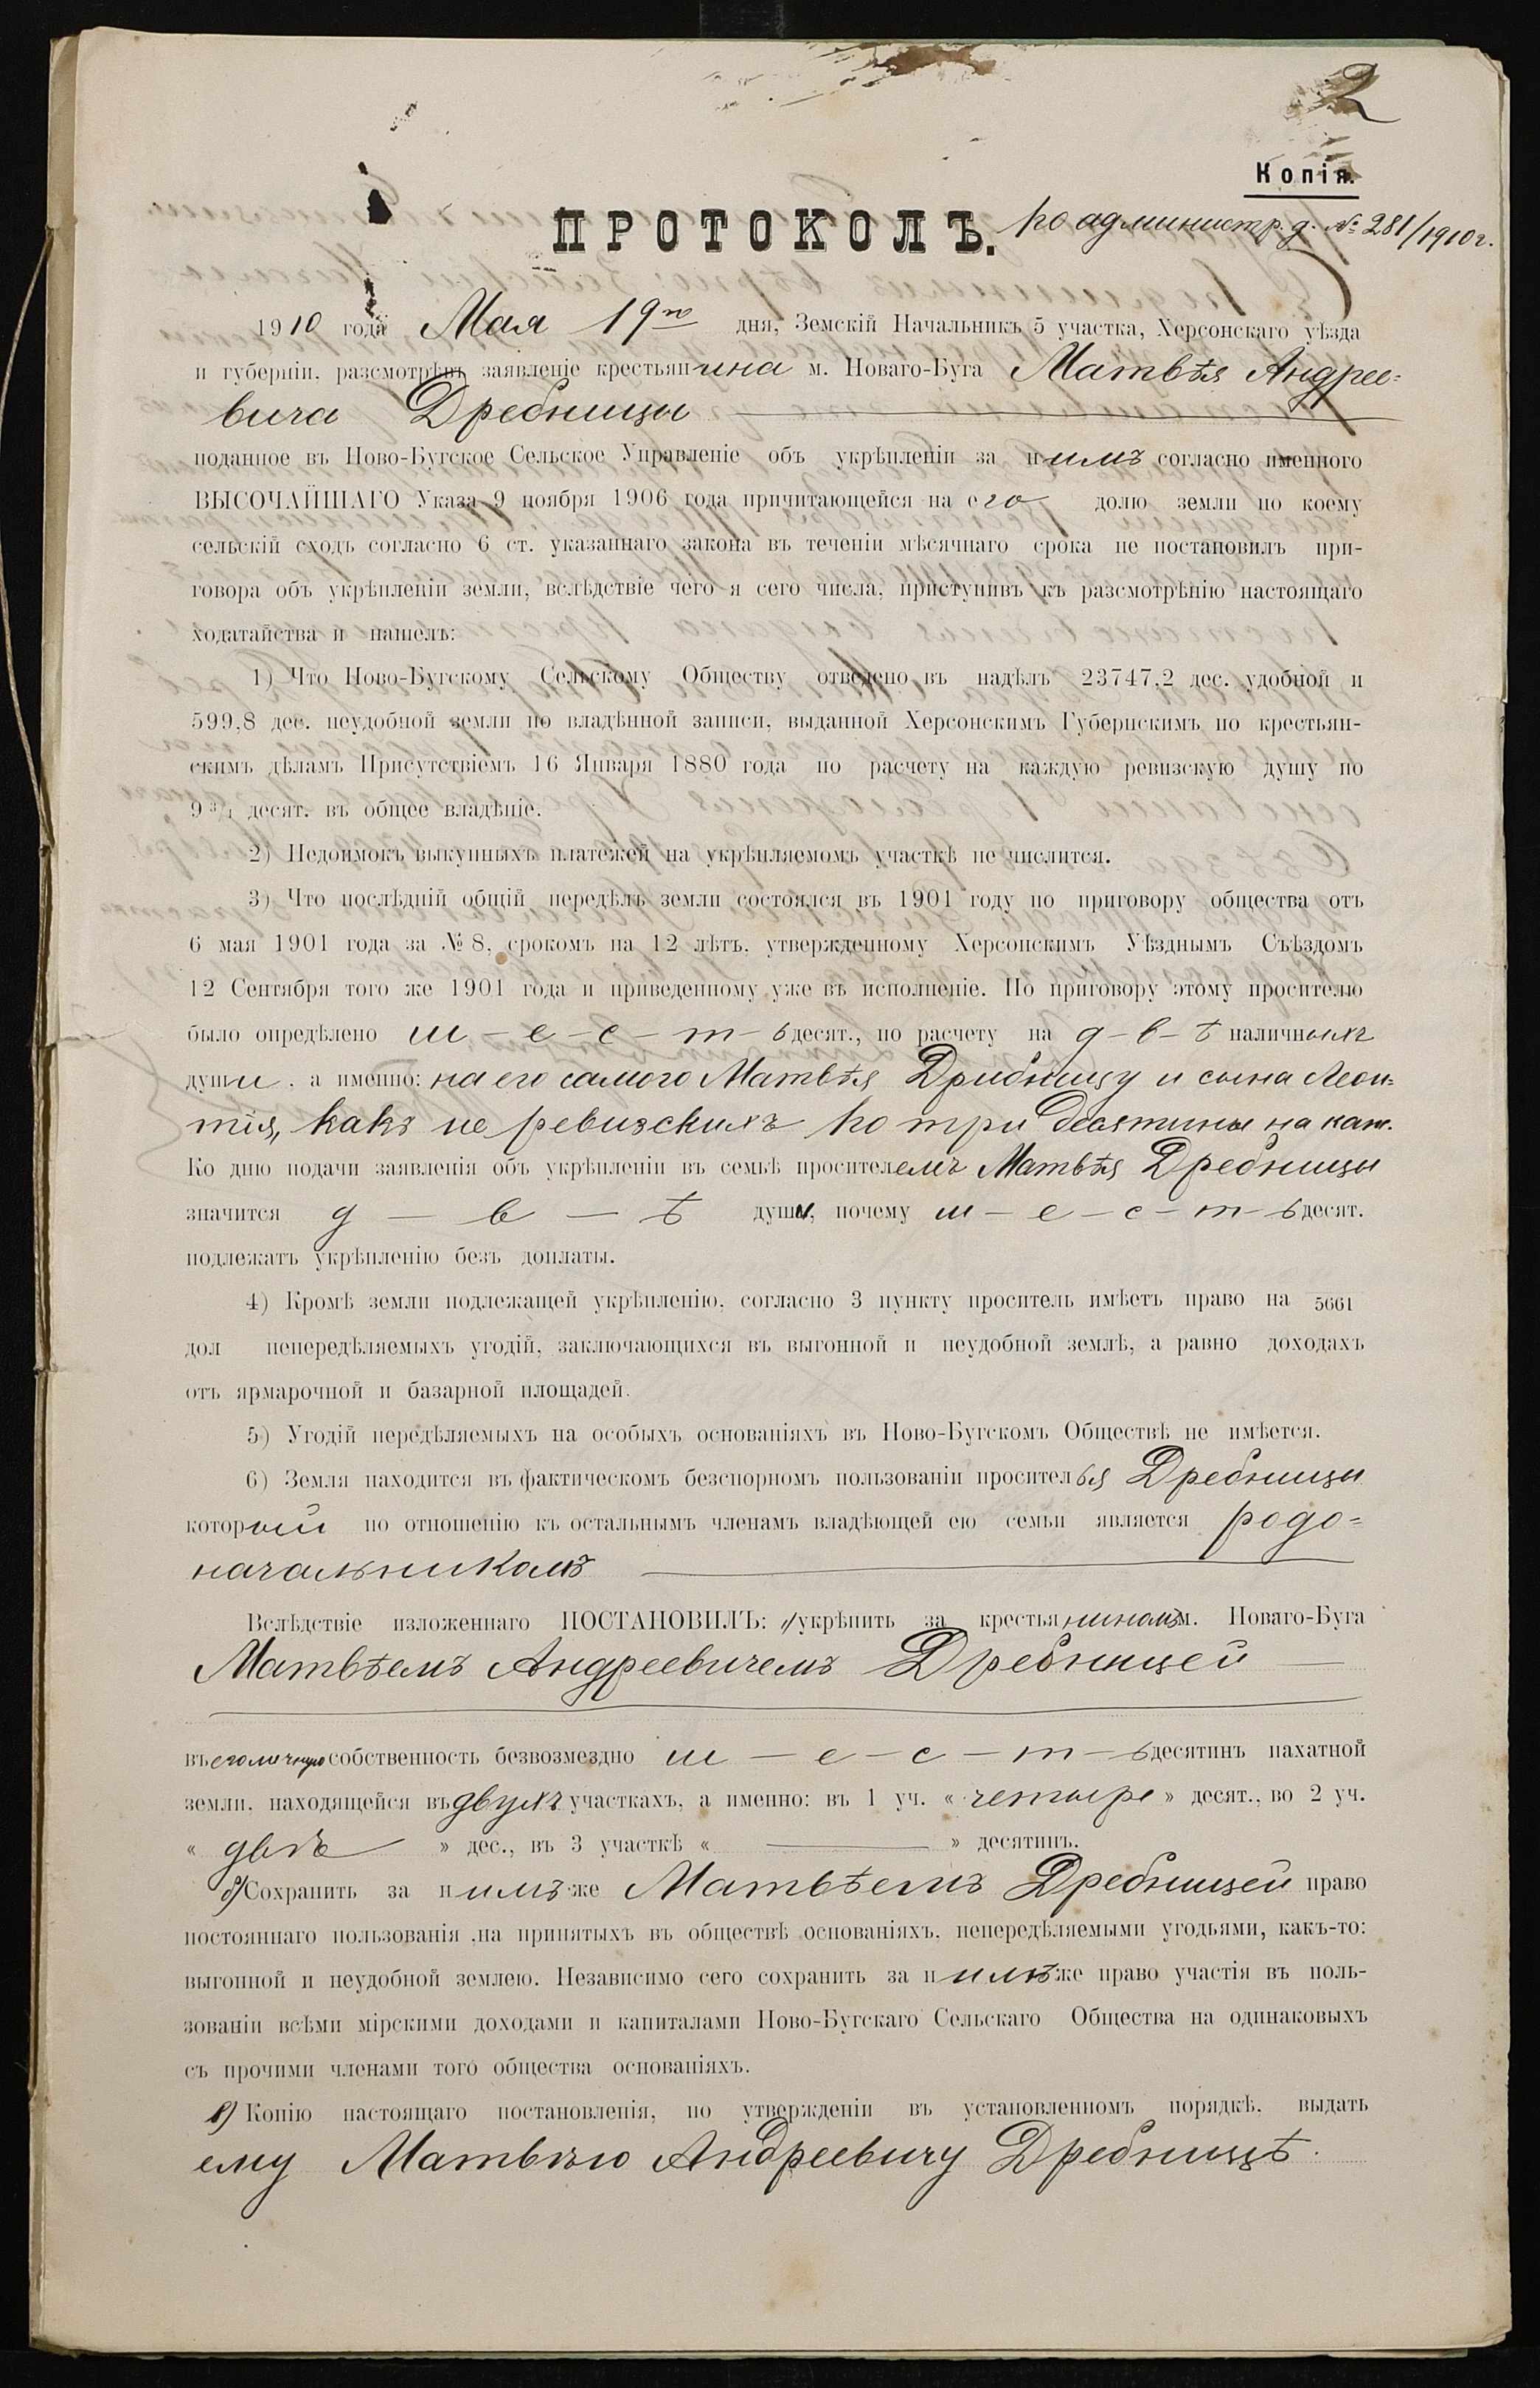 2
Копія.
ПРОТОКОЛЪ. по администр. д. № 281/1910 г.
1910 года Мая 19го дня, Земскій Начальникъ 5 участка, Херсонскаго уѣзда
и губерніи, разсмотрѣвъ заявленіе крестьянина м. Новаго-Буга Матвѣя Андрее=
вича Дребницы
поданное въ Ново-Бугское Сельское Управленіе объ укрѣпленіи за нимъ согласно именного
ВЫСОЧАЙШАГО Указа 9 ноября 1906 года причитающейся на его долю земли по коему
сельскій сходъ согласно 6 ст. указаннаго закона въ теченіи мѣсячнаго срока не постановилъ при-
говора объ укрѣпленіи земли, вслѣдствіе чего я сего числа, приступивъ къ разсмотрѣнію настоящаго
ходатайства и нашелъ:
1) Что Ново-Бугскому Сельскому Обществу отведено въ надѣлъ 23747,2 дес. удобной и
599,8 дес. неудобной земли по владѣнной записи, выданной Херсонскимъ Губернскимъ по крестьян-
скимъ дѣламъ Присутствіемъ 16 Января 1880 года по расчету на каждую ревизскую душу по
9 3/4 десят. въ общее владѣніе.
2) Недоимокъ выкупныхъ платежей на укрѣпляемомъ участкѣ не числится.
3) Что послѣдній общій передѣлъ земли состоялся въ 1901 году по приговору общества отъ
6 мая 1901 года за № 8, срокомъ на 12 лѣтъ, утвержденному Херсонскимъ Уѣзднымъ Съѣздомъ
12 Сентября того же 1901 года и приведенному уже въ исполненіе. По приговору этому просителю
было опредѣлено ш – е – с – т – ь десят., по расчету на д – в – ѣ наличныхъ
души, а именно: на его самого Матвѣя Дрибницу и сына Леон=
тія, какъ не ревизскихъ по три десятины на каж.
Ко дню подачи заявленія объ укрѣпленіи въ семьѣ просителемъ Матвѣя Дребницы
значится д — в — ѣ души, почему ш – е – с – т – ь десят.
подлежатъ укрѣпленію безъ доплаты.
4) Кромѣ земли подлежащей укрѣпленію, согласно 3 пункту проситель имѣетъ право на 5661
дол непередѣляемыхъ угодій, заключающихся въ выгонной и неудобной землѣ, а равно доходахъ
отъ ярмарочной и базарной площадей.
5) Угодій передѣляемыхъ на особыхъ основаніяхъ въ Ново-Бугскомъ Обществѣ не имѣется.
6) Земля находится въ фактическомъ безспорномъ пользованіи просителья Дребницы
который по отношенію къ остальнымъ членамъ владѣющей ею семьи является родо=
начальникомъ
Вслѣдствіе изложеннаго ПОСТАНОВИЛЪ: укрѣпить за крестьяниномъ м. Новаго-Буга
Матвѣемъ Андреевичемъ Дребницей
въ его личную собственность безвозмездно ш – е – с – т – ь десятинъ пахатной
земли, находящейся въ двухъ участкахъ, а именно: въ 1 уч. « четыре » десят., во 2 уч.
« двѣ » дес., въ 3 участкѣ « — » десятинъ.
б) Сохранить за нимъ же Матвѣемъ Дребницей право
постояннаго пользованія ,на принятыхъ въ обществѣ основаніяхъ, непередѣляемыми угодьями, какъ-то:
выгонной и неудобной землею. Независимо сего сохранить за нимъ же право участія въ поль-
зованіи всѣми мірскими доходами и капиталами Ново-Бугскаго Сельскаго Общества на одинаковыхъ
съ прочими членами того общества основаніяхъ.
в) Копію настоящаго постановленія, по утвержденіи въ установленномъ порядкѣ, выдать
ему Матвѣю Андреевичу Дребницѣ.